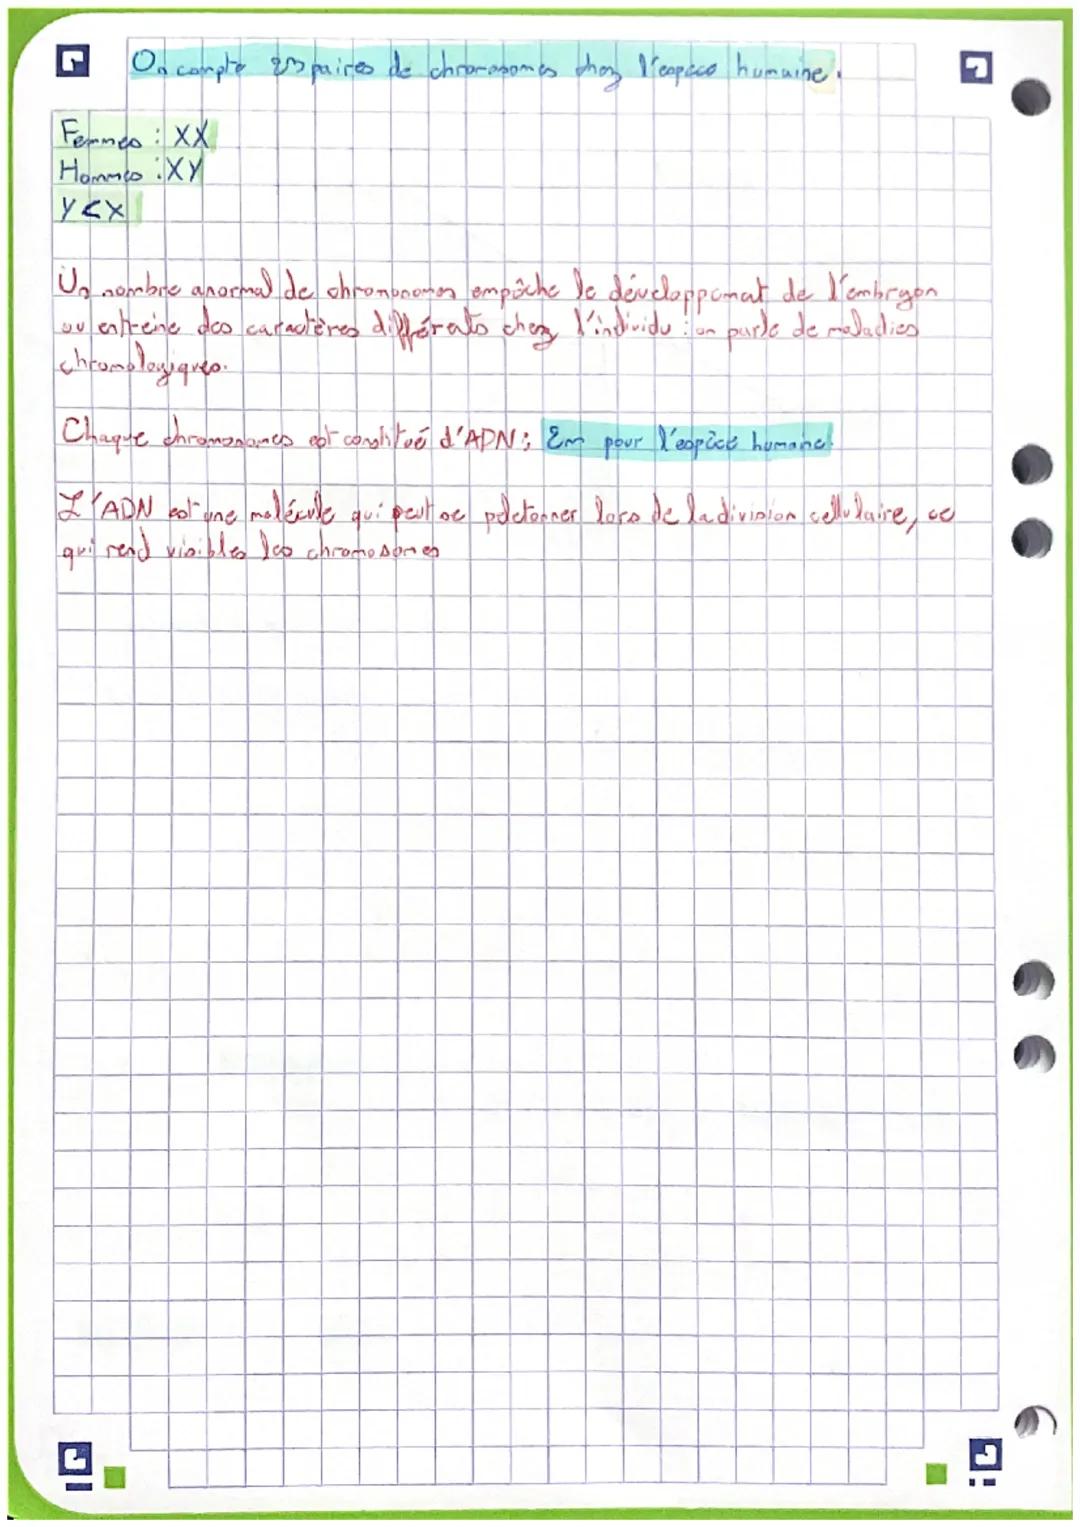 On compte 23 paires de chromosomes chez l'espèce humaine.
Femmes : XX
Hommes : XY
Y < X
Un nombre anormal de chromosomes empêche le développemat de l'embryon
ou entreine des caractères différents chez l'individu : on parle de maladies
chromologiques.
Chaque chromosomes est constitué d'ADN : 2m pour l'espèce humaine.
L'ADN est une molécule qui peut se peletonner lors de la division cellulaire, ce
qui rend visibles les chromosomes